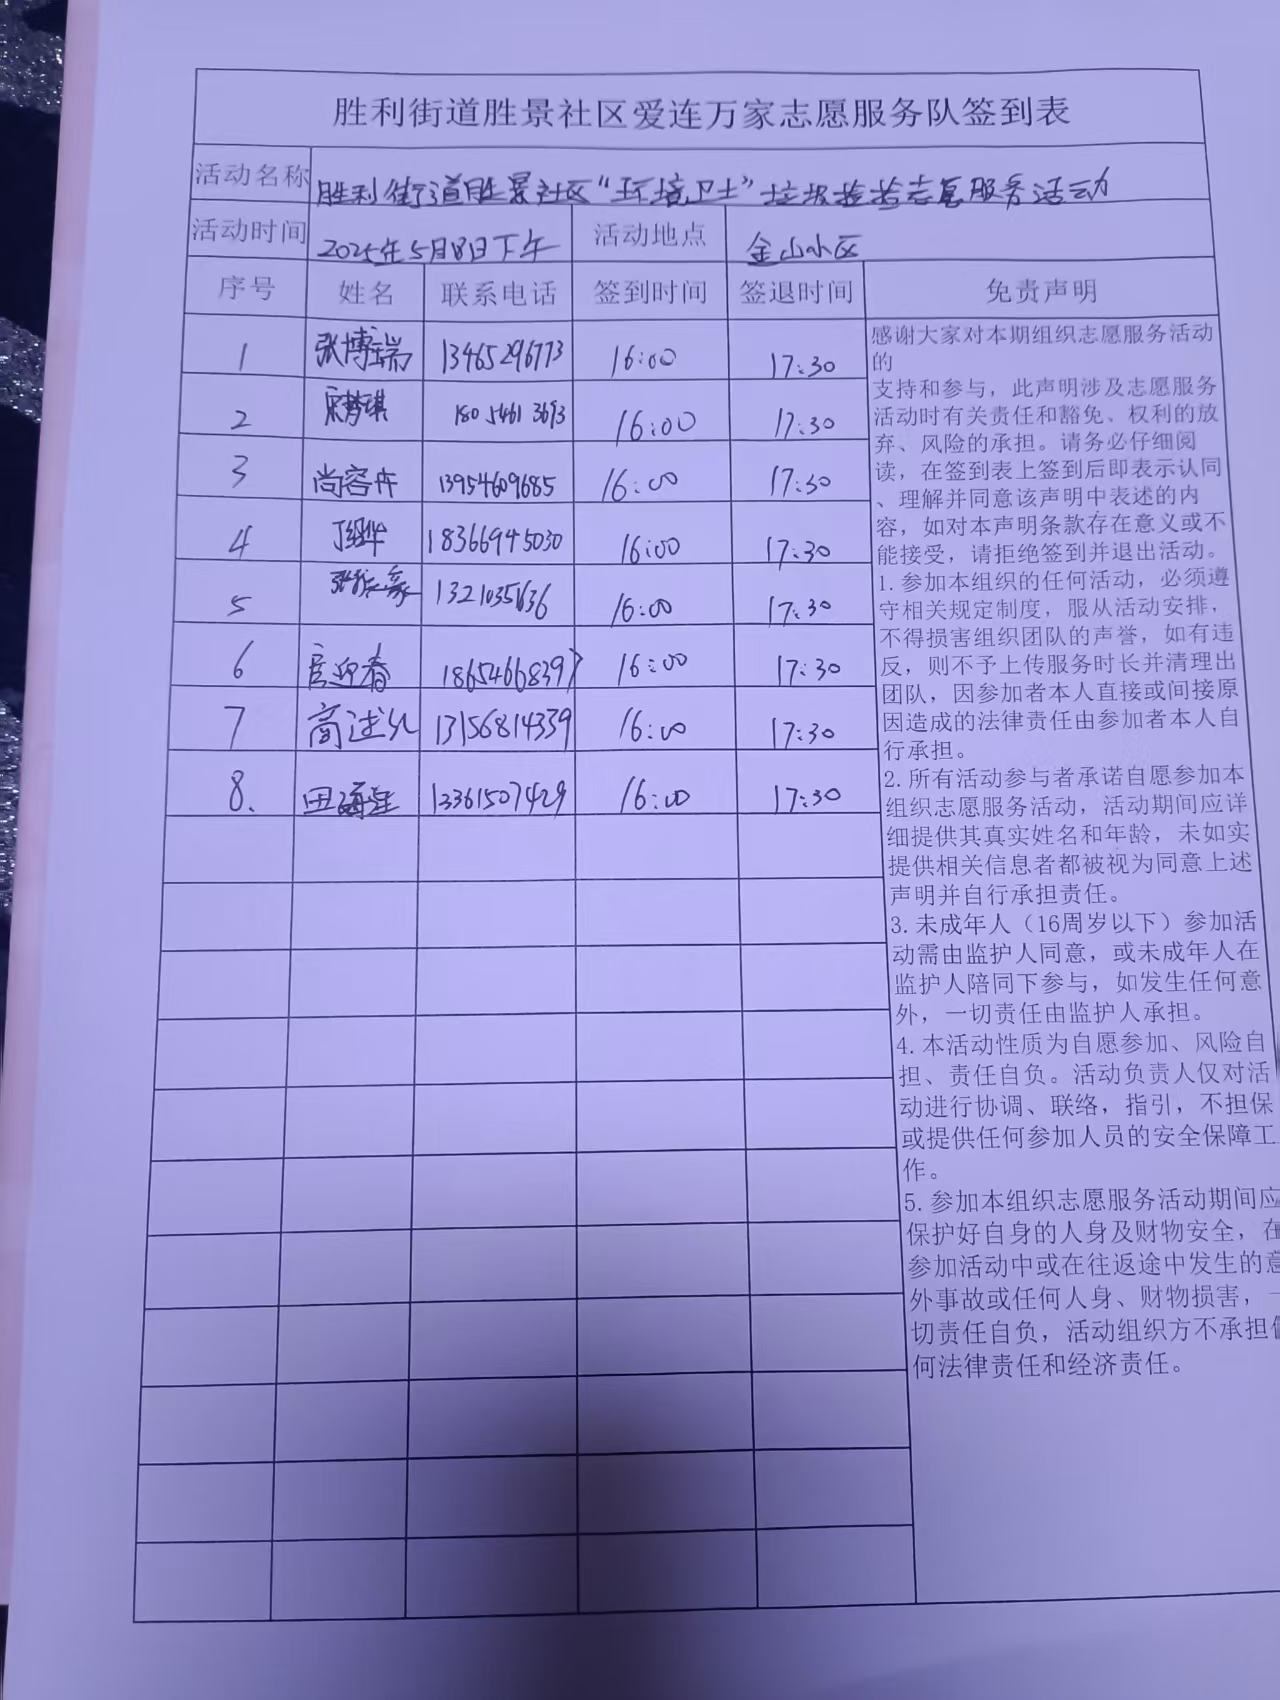 胜利街道胜景社区爱连万家志愿服务队签到表
活动名称 胜利街道胜景社区“环境卫士”垃圾捡拾志愿服务活动
活动时间 2025年5月18日下午 活动地点 金山小区
序号 姓名 联系电话 签到时间 签退时间 免责声明
1 张博瑞 13465296773 16:00 17:30
2 宋梦琪 18054613693 16:00 17:30
3 尚容卉 13954609685 16:00 17:30
4 丁继华 18366945030 16:00 17:30
5 张振豪 16:00 17:30
6 官迎春 18654668397 16:00 17:30
7 高进 13156814339 16:00 17:30
8. 田海星 13361507429 16:00 17:30
感谢大家对本期组织志愿服务活动
的
支持和参与，此声明涉及志愿服务
活动时有关责任和豁免、权利的放
弃、风险的承担。请务必仔细阅
读，在签到表上签到后即表示认同
、理解并同意该声明中表述的内
容，如对本声明条款存在意义或不
能接受，请拒绝签到并退出活动。
1. 参加本组织的任何活动，必须遵
守相关规定制度，服从活动安排，
不得损害组织团队的声誉，如有违
反，则不予上传服务时长并清理出
团队，因参加者本人直接或间接原
因造成的法律责任由参加者本人自
行承担。
2. 所有活动参与者承诺自愿参加本
组织志愿服务活动，活动期间应详
细提供其真实姓名和年龄，未如实
提供相关信息者都被视为同意上述
声明并自行承担责任。
3. 未成年人（16周岁以下）参加活
动需由监护人同意，或未成年人在
监护人陪同下参与，如发生任何意
外，一切责任由监护人承担。
4. 本活动性质为自愿参加、风险自
担、责任自负。活动负责人仅对活
动进行协调、联络，指引，不担保
或提供任何参加人员的安全保障工
作。
5. 参加本组织志愿服务活动期间应
保护好自身的人身及财物安全，在
参加活动中或在往返途中发生的意
外事故或任何人身、财物损害，一
切责任自负，活动组织方不承担任
何法律责任和经济责任。